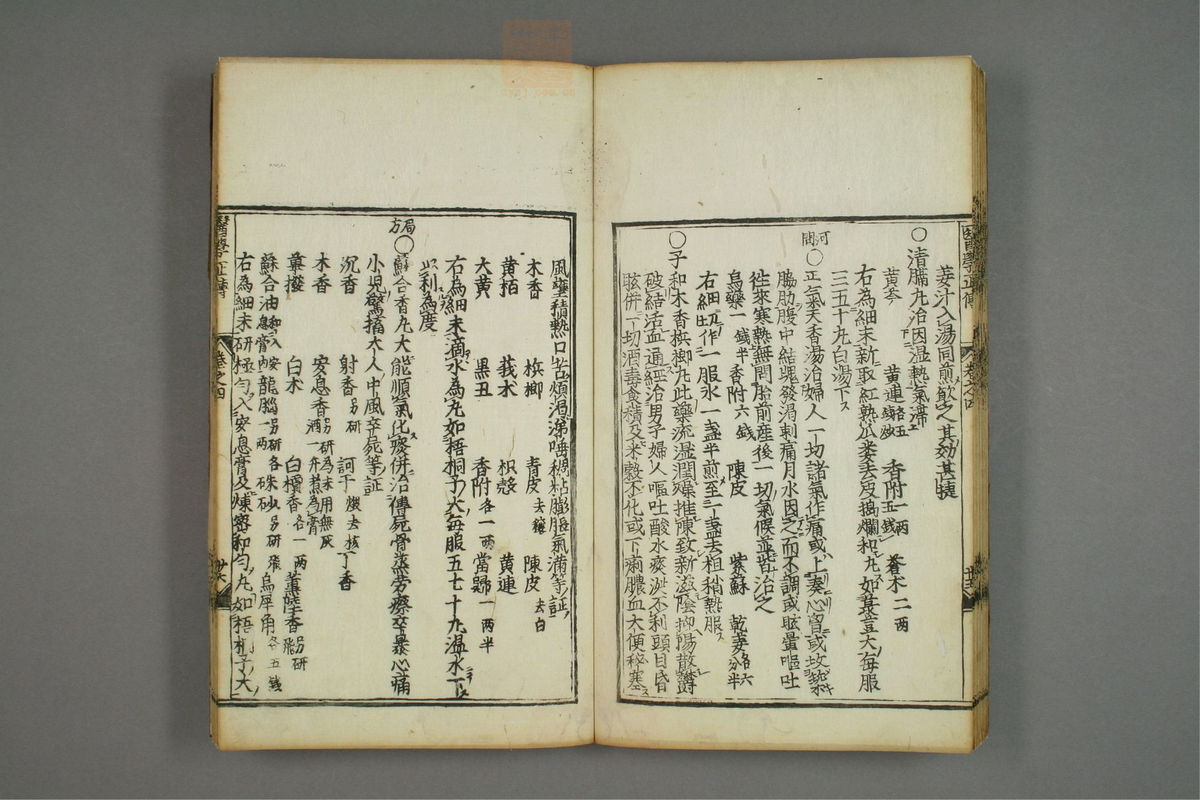 姜汁入湯同煎飲之其効甚捷
○清膈丸治因湿熱氣滯
黄芩 黄連各五錢炒 香附一兩五錢 蒼朮二兩
右為細末新取紅熟瓜蔞去皮搗爛和丸如菉豆大每服
三五十丸白湯下
河間
○正氣天香湯治婦人一切諸氣作痛或上湊心胷或攻築
脇肋腹中結塊發渇刺痛月水因之而不調或眩暈嘔吐
徃來寒熱無問胎前産後一切氣候並皆治之
烏藥一錢半 香附六錢 陳皮 紫蘇 乾姜各六分半
右細切作一服水一盞半煎至一盞去柤稍熱服
○子和木香梹榔丸此藥流湿潤燥推陳致新滋陰抑陽散鬱
破結活血通經治男子婦人嘔吐酸水痰涎不利頭目昏
眩併一切酒毒食積及米穀不化或下痢膿血大便秘塞
風壅積熱口苦煩渇涕唾稠粘膨脹氣滿等証
木香 梹榔 青皮去穰 陳皮去白
黄栢 莪朮 枳殻 黄連
大黄 黒丑 香附各一兩 當歸一兩半
右為細末滴水為丸如梧桐子大每服五七十丸温水下
以利為度
局方
○蘇合香丸大能順氣化痰併治傳屍骨蒸労瘵卒暴心痛
小児驚搐大人中風卒死等証
沉香 射香另研 訶子煨去核 丁香
木香 安息香另研為末用無灰酒一升煮為膏
蓽撥 白朮 白檀香各一兩 薫陸香另研
蘇合油和入安息膏内 龍腦另研各一兩 硃砂另研飛 烏犀角各五錢
右為細末研極勻入安息膏及煉蜜和勻丸如梧桐子大
醫學正傳 卷之四